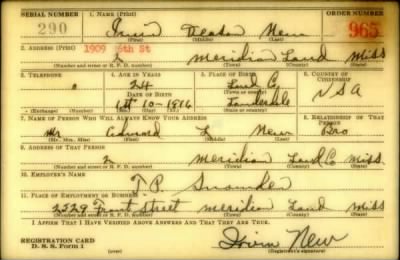 SERIAL NUMBER 1. NAME (Print) ORDER NUMBER
290 Irvin Deaton New 965
(First) (Middle) (Last)
2. ADDRESS (Print) 1909 6th St
2 Meridian Laud Miss
(Number and street or R. F. D. number) (Town) (County) (State)
3. TELEPHONE 4. AGE IN YEARS 5. PLACE OF BIRTH 6. COUNTRY OF CITIZENSHIP
24 Laud Co USA
DATE OF BIRTH (Town or county)
10-1916 Lauderdale
(Exchange) (Number) (Mo.) (Day) (Yr.) (State or country)
7. NAME OF PERSON WHO WILL ALWAYS KNOW YOUR ADDRESS 8. RELATIONSHIP OF THAT PERSON
Mr Edward L New Bro
(Mr., Mrs., Miss) (First) (Middle) (Last)
9. ADDRESS OF THAT PERSON
2 Meridian Laud Co Miss
(Number and street or R. F. D. number) (Town) (County) (State)
10. EMPLOYER'S NAME
T.P.
11. PLACE OF EMPLOYMENT OR BUSINESS
2529 Front Street Meridian Laud Miss
(Number and street or R. F. D. number) (Town) (County) (State)
I AFFIRM THAT I HAVE VERIFIED ABOVE ANSWERS AND THAT THEY ARE TRUE.
REGISTRATION CARD
D. S. S. Form 1 Irvin New
(Registrant's signature)